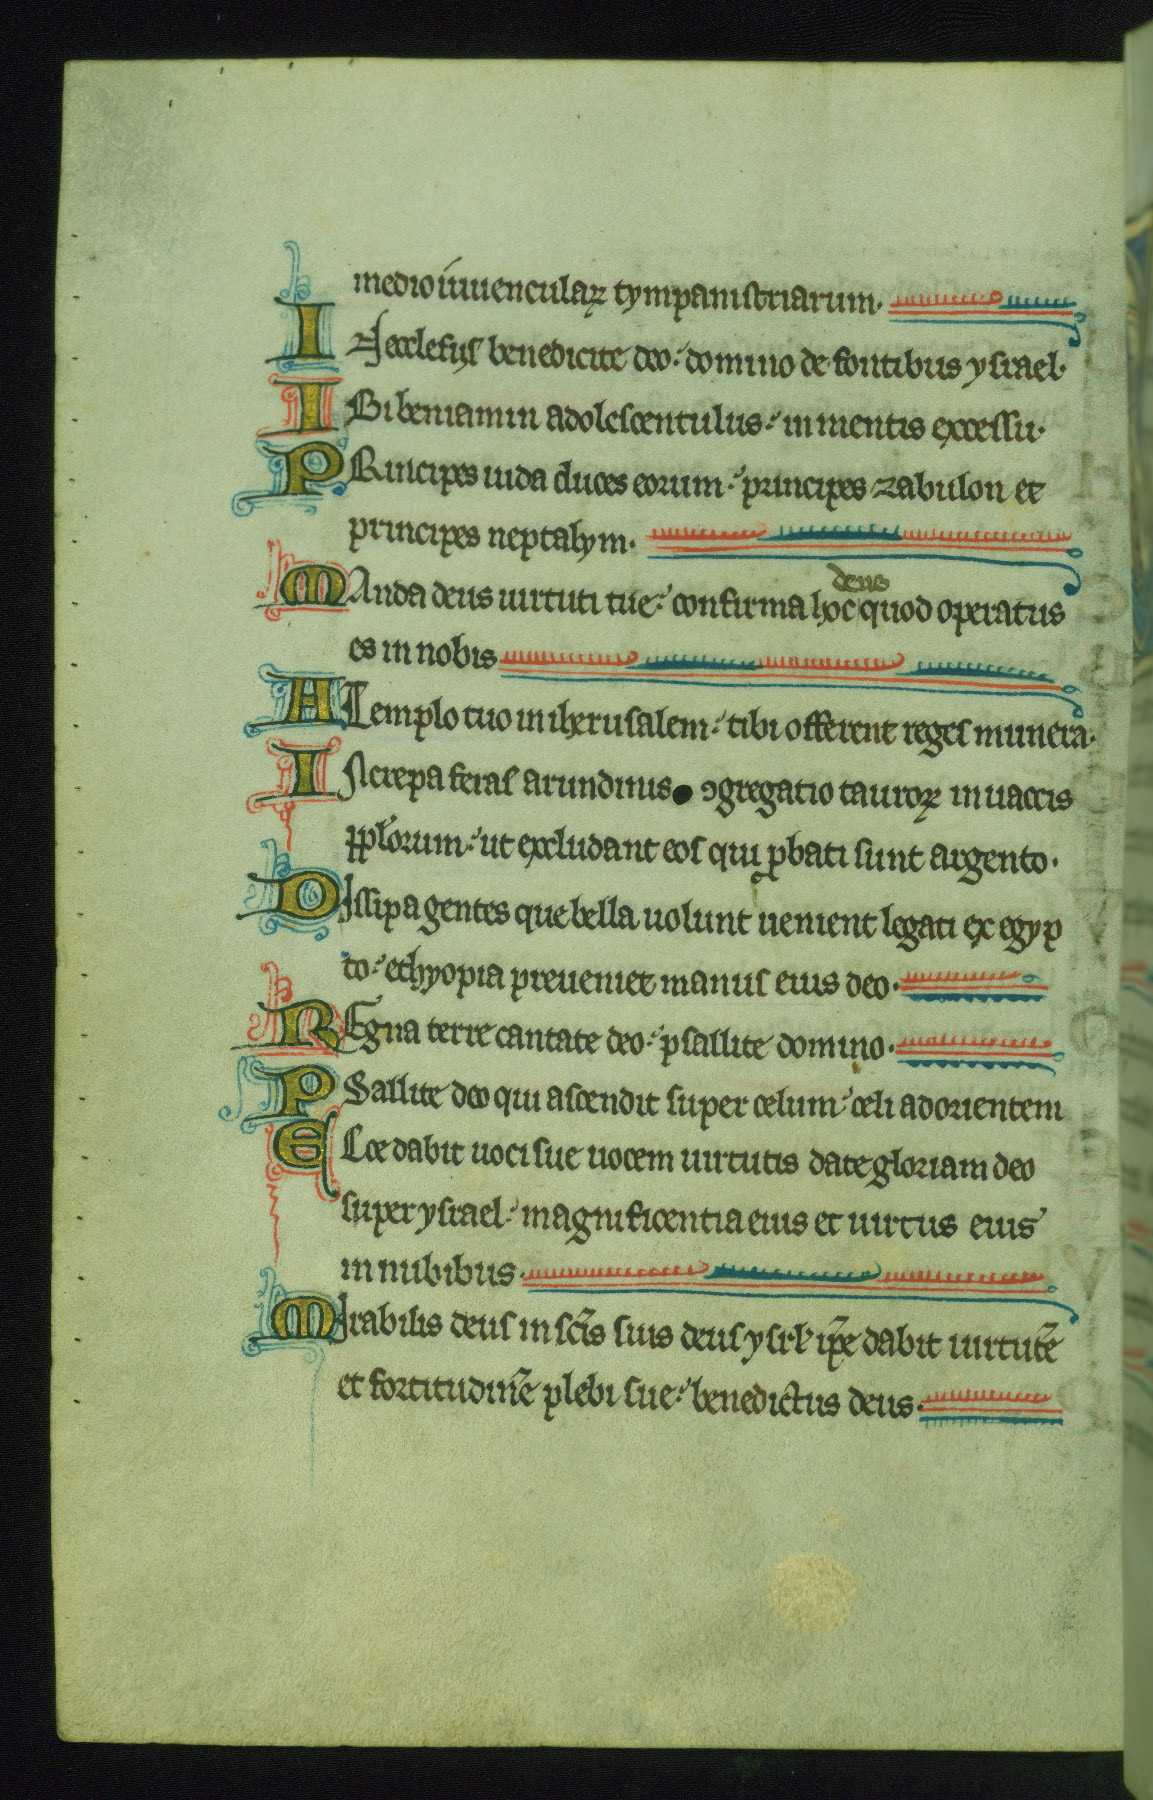 medio iuuencularꝝ tympanistriarum.
IN ecclesijs benedicite deo: domino de fontibus ysrael.
IBi beniamin adolescentulus: in mentis excessu.
PRincipes iuda duces eorum: principes zabulon et
principes neptalym.
deus
MAnda deus uirtuti tue: confirma hoc quod operatus
es in nobis
A Templo tuo in iherusalem: tibi offerent reges munera.
INcrepa feras arundinis ꝯgregatio taurorꝝ in uaccis
pplorum: ut excludant eos qui ꝓbati sunt argento.
DIssipa gentes que bella uolunt uenient legati ex egyp
to: ethyopia preueniet manus eius deo.
REgna terre cantate deo: psallite domino.
PSallite deo qui ascendit super celum: celi ad orientem
ECce dabit uoci sue uocem uirtutis date gloriam deo
super ysrael: magnificentia eius et uirtus eius
in nubibus.
MIrabilis deus in scīs suis deus ysrl' ip̄e dabit uirtutē
et fortitudinē plebi sue: benedictus deus.